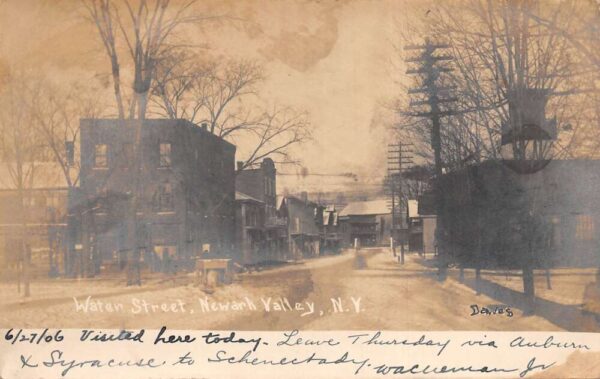 Water Street, Newark Valley, N.Y.
Davis
6/27/06 Visited here today. Leave Thursday via Auburn
& Syracuse to Schenectady. Jr